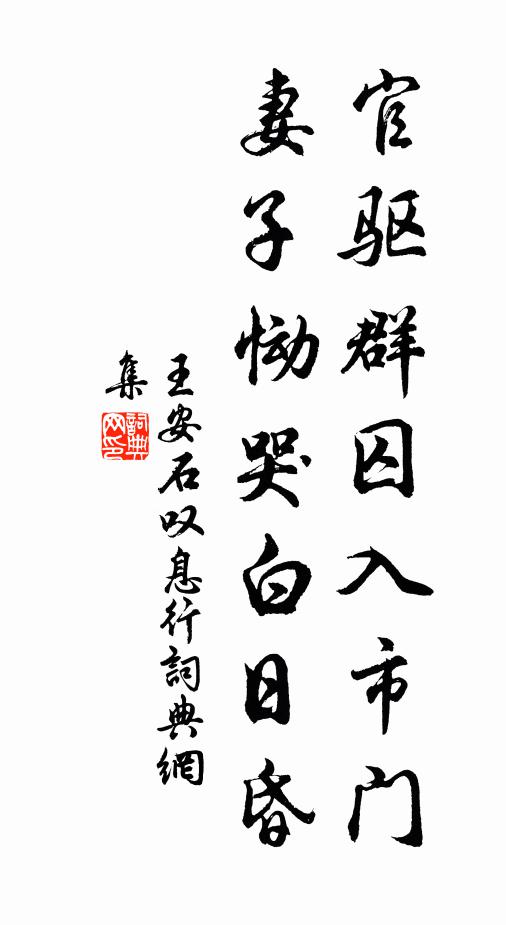 官驱群囚入市门
妻子恸哭白日昏
王安石叹息行詞典網
集
詞典
网印